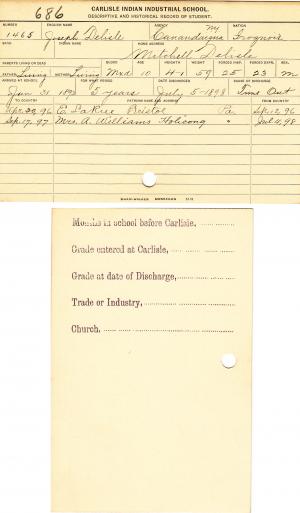 686
CARLISLE INDIAN INDUSTRIAL SCHOOL.
DESCRIPTIVE AND HISTORICAL RECORD OF STUDENT.
NUMBER ENGLISH NAME AGENCY NATION
1465 Joseph Delisle Canandaigua NY
BAND INDIAN NAME HOME ADDRESS
Mitchell Delisle
PARENTS LIVING OR DEAD BLOOD AGE HEIGHT WEIGHT FORCED INSP. FORCED EXPR. SEX.
FATHER Living MOTHER Living Mxd 10 59 25 23 M
ARRIVED AT SCHOOL FOR WHAT PERIOD DATE DISCHARGED CAUSE OF DISCHARGE
Jan 31 1893 5 years July 5-1898 Time Out
TO COUNTRY PATRONS NAME AND ADDRESS FROM COUNTRY
Apr. 30, 96 E. LaRue Bristol Pa Sep. 12, 96
Sep. 17, 97 Mrs. A. Williams Holicong " Jul 4, 98
Months in school before Carlisle,
Grade entered at Carlisle,
Grade at date of Discharge,
Trade or Industry,
Church,